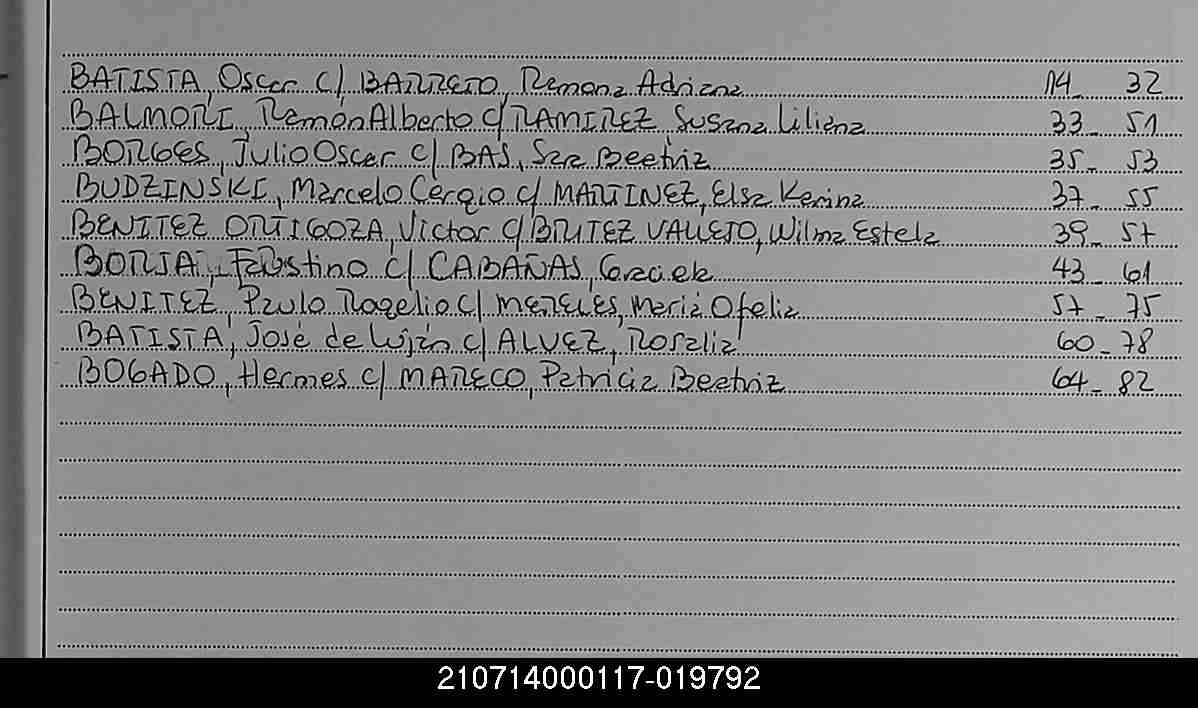 BATISTA, Oscar c/ BARRETO, Ramona Adriana 14_ 32
BALMORI, Ramón Alberto c/ RAMIREZ, Susana Liliana 33_ 51
BORGES, Julio Oscar c/ BAS, Sara Beatriz 35_ 53
BUDZINSKI, Marcelo Cergio c/ MARTINEZ, Elsa Karina 37_ 55
BENITEZ ORTIGOZA, Victor c/ BRITEZ VALLEJO, Wilma Estela 39_ 57
BORJA, Faustino c/ CABAÑAS, Graciela 43_ 61
BENITEZ, Paulo Rogelio c/ MERELES, María Ofelia 57_ 75
BATISTA, José de Luján c/ ALVEZ, Rosalia 60_ 78
BOGADO, Hermes c/ MARECO, Patricia Beatriz 64_ 82
210714000117-019792